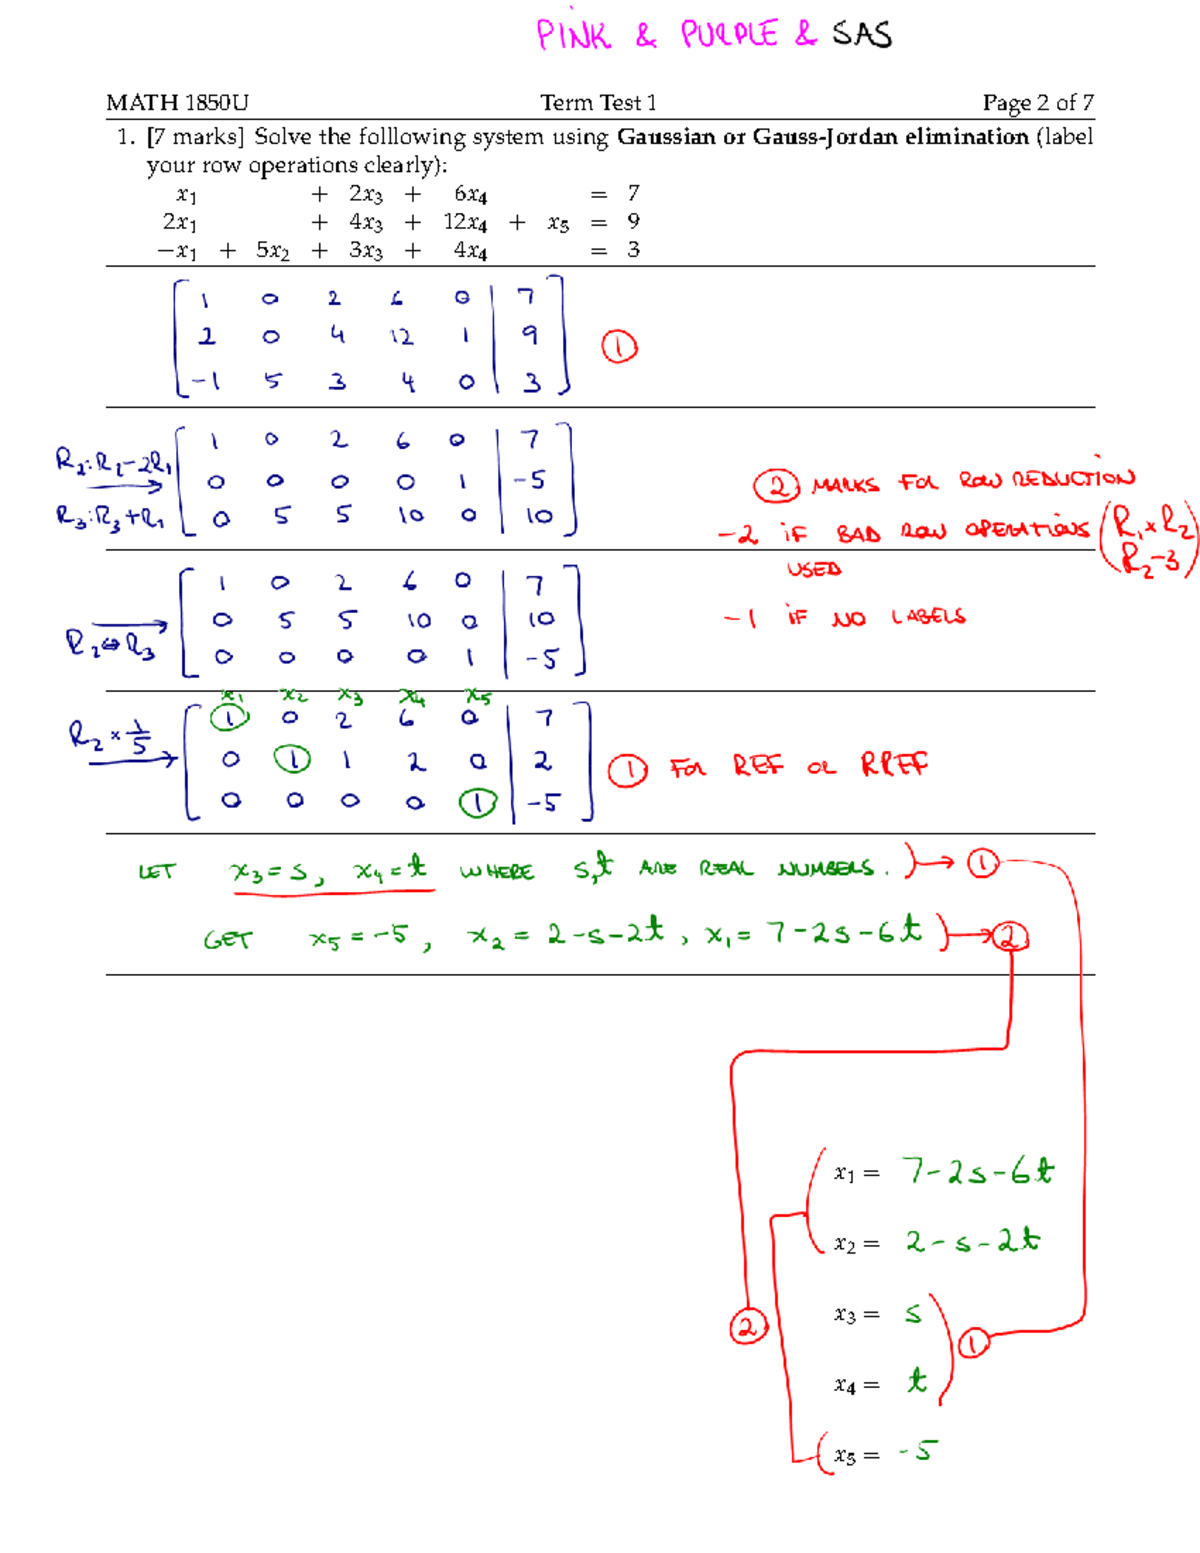 PINK & PURPLE & SAS
MATH 1850U Term Test 1 Page 2 of 7
1. [7 marks] Solve the folllowing system using Gaussian or Gauss-Jordan elimination (label
your row operations clearly):
x1 + 2x3 + 6x4 = 7
2x1 + 4x3 + 12x4 + x5 = 9
−x1 + 5x2 + 3x3 + 4x4 = 3
1 0 2 6 0 | 7
2 0 4 12 1 | 9
①
-1 5 3 4 0 | 3
R2:R2-2R1
R3:R3+R1
1 0 2 6 0 | 7
0 0 0 0 1 | -5
0 5 5 10 0 | 10
② MARKS FOR ROW REDUCTION
-2 IF BAD ROW OPERATIONS (R1×R2
R2-3)
USED
-1 IF NO LABELS
R2⇔R3
1 0 2 6 0 | 7
0 5 5 10 0 | 10
0 0 0 0 1 | -5
x1 x2 x3 x4 x5
R2 × 1/5
① 0 2 6 0 | 7
0 ① 1 2 0 | 2
0 0 0 0 ① | -5
① FOR REF OR RREF
LET x3=s, x4=t WHERE s,t ARE REAL NUMBERS. )→ ①
GET x5=-5, x2=2-s-2t, x1=7-2s-6t )→②
x1 = 7-2s-6t
x2 = 2-s-2t
x3 = s
②
①
x4 = t
x5 = -5